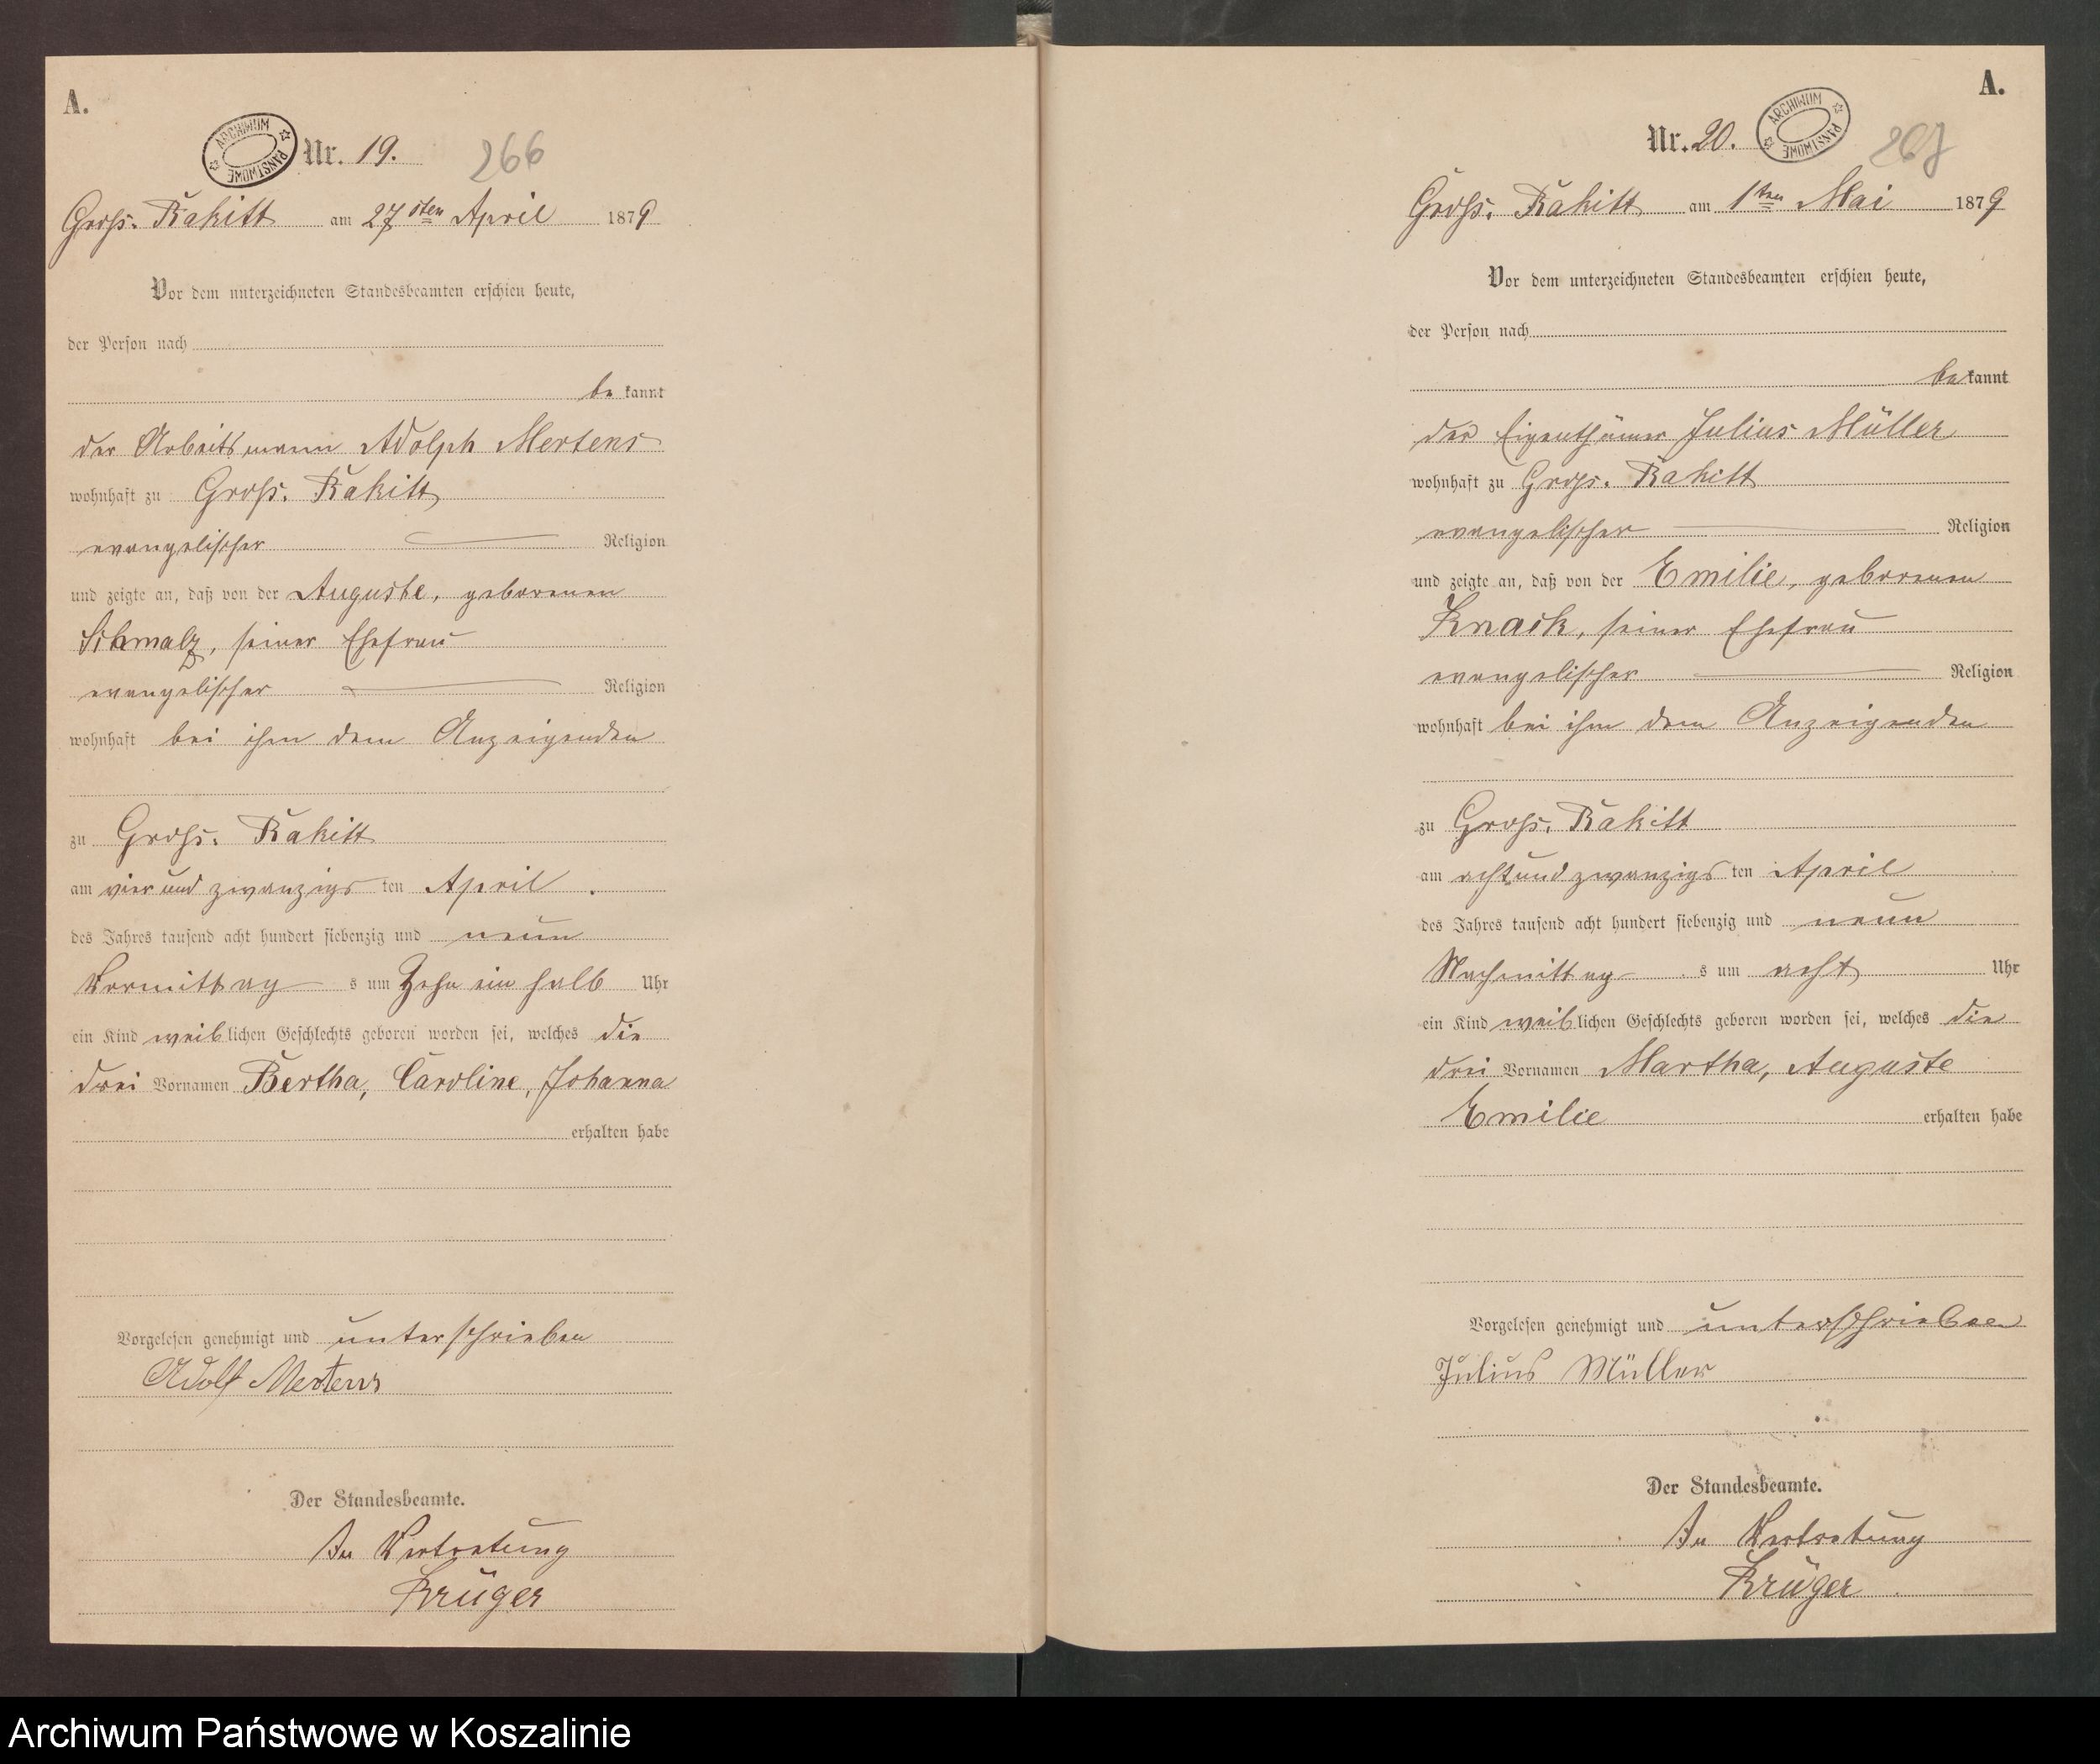 A.
ARCHIWUM PAŃSTWOWE
Nr. 19.
266
Groß. Rakitt am 27sten April 1879
Vor dem unterzeichneten Standesbeamten erschien heute,
der Person nach
bekannt
der Arbeitsmann Adolph Mertens
wohnhaft zu Groß. Rakitt
evangelischer Religion
und zeigte an, daß von der Auguste, geborenen
Schmalz, seiner Ehefrau
evangelischer Religion
wohnhaft bei ihm dem Anzeigenden
zu Groß. Rakitt
am vier und zwanzigsten April
des Jahres tausend acht hundert siebenzig und neun
Vormittags um Zehn ein halb Uhr
ein Kind weiblichen Geschlechts geboren worden sei, welches die
drei Vornamen Bertha, Caroline, Johanna
erhalten habe
Vorgelesen genehmigt und unterschrieben
Adolf Mertens
Der Standesbeamte.
In Vertretung
Krüger
A.
Nr. 20.
ARCHIWUM PAŃSTWOWE
267
Groß. Rakitt am 1ten Mai 1879
Vor dem unterzeichneten Standesbeamten erschien heute,
der Person nach
bekannt
der Eigenthümer Julius Müller
wohnhaft zu Groß. Rakitt
evangelischer Religion
und zeigte an, daß von der Emilie, geborenen
Knack, seiner Ehefrau
evangelischer Religion
wohnhaft bei ihm dem Anzeigenden
zu Groß. Rakitt
am acht und zwanzigsten April
des Jahres tausend acht hundert siebenzig und neun
Nachmittags um acht Uhr
ein Kind weiblichen Geschlechts geboren worden sei, welches die
drei Vornamen Martha, Auguste
Emilie erhalten habe
Vorgelesen genehmigt und unterschrieben
Julius Müller
Der Standesbeamte.
In Vertretung
Krüger
Archiwum Państwowe w Koszalinie